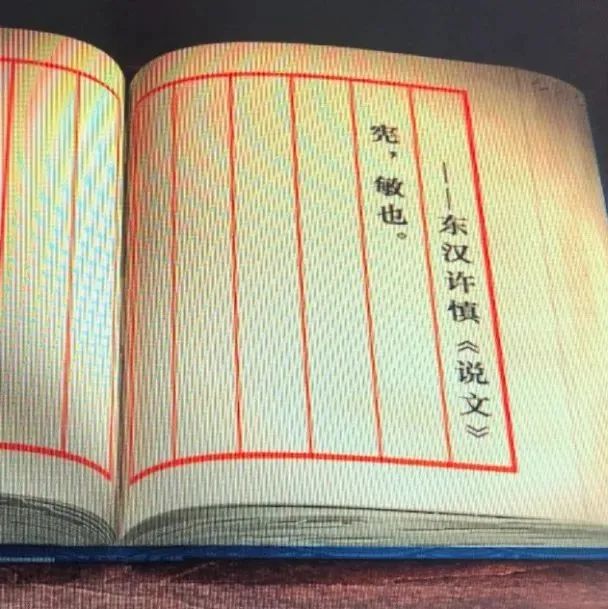 宪，敏也。
——东汉许慎《说文》